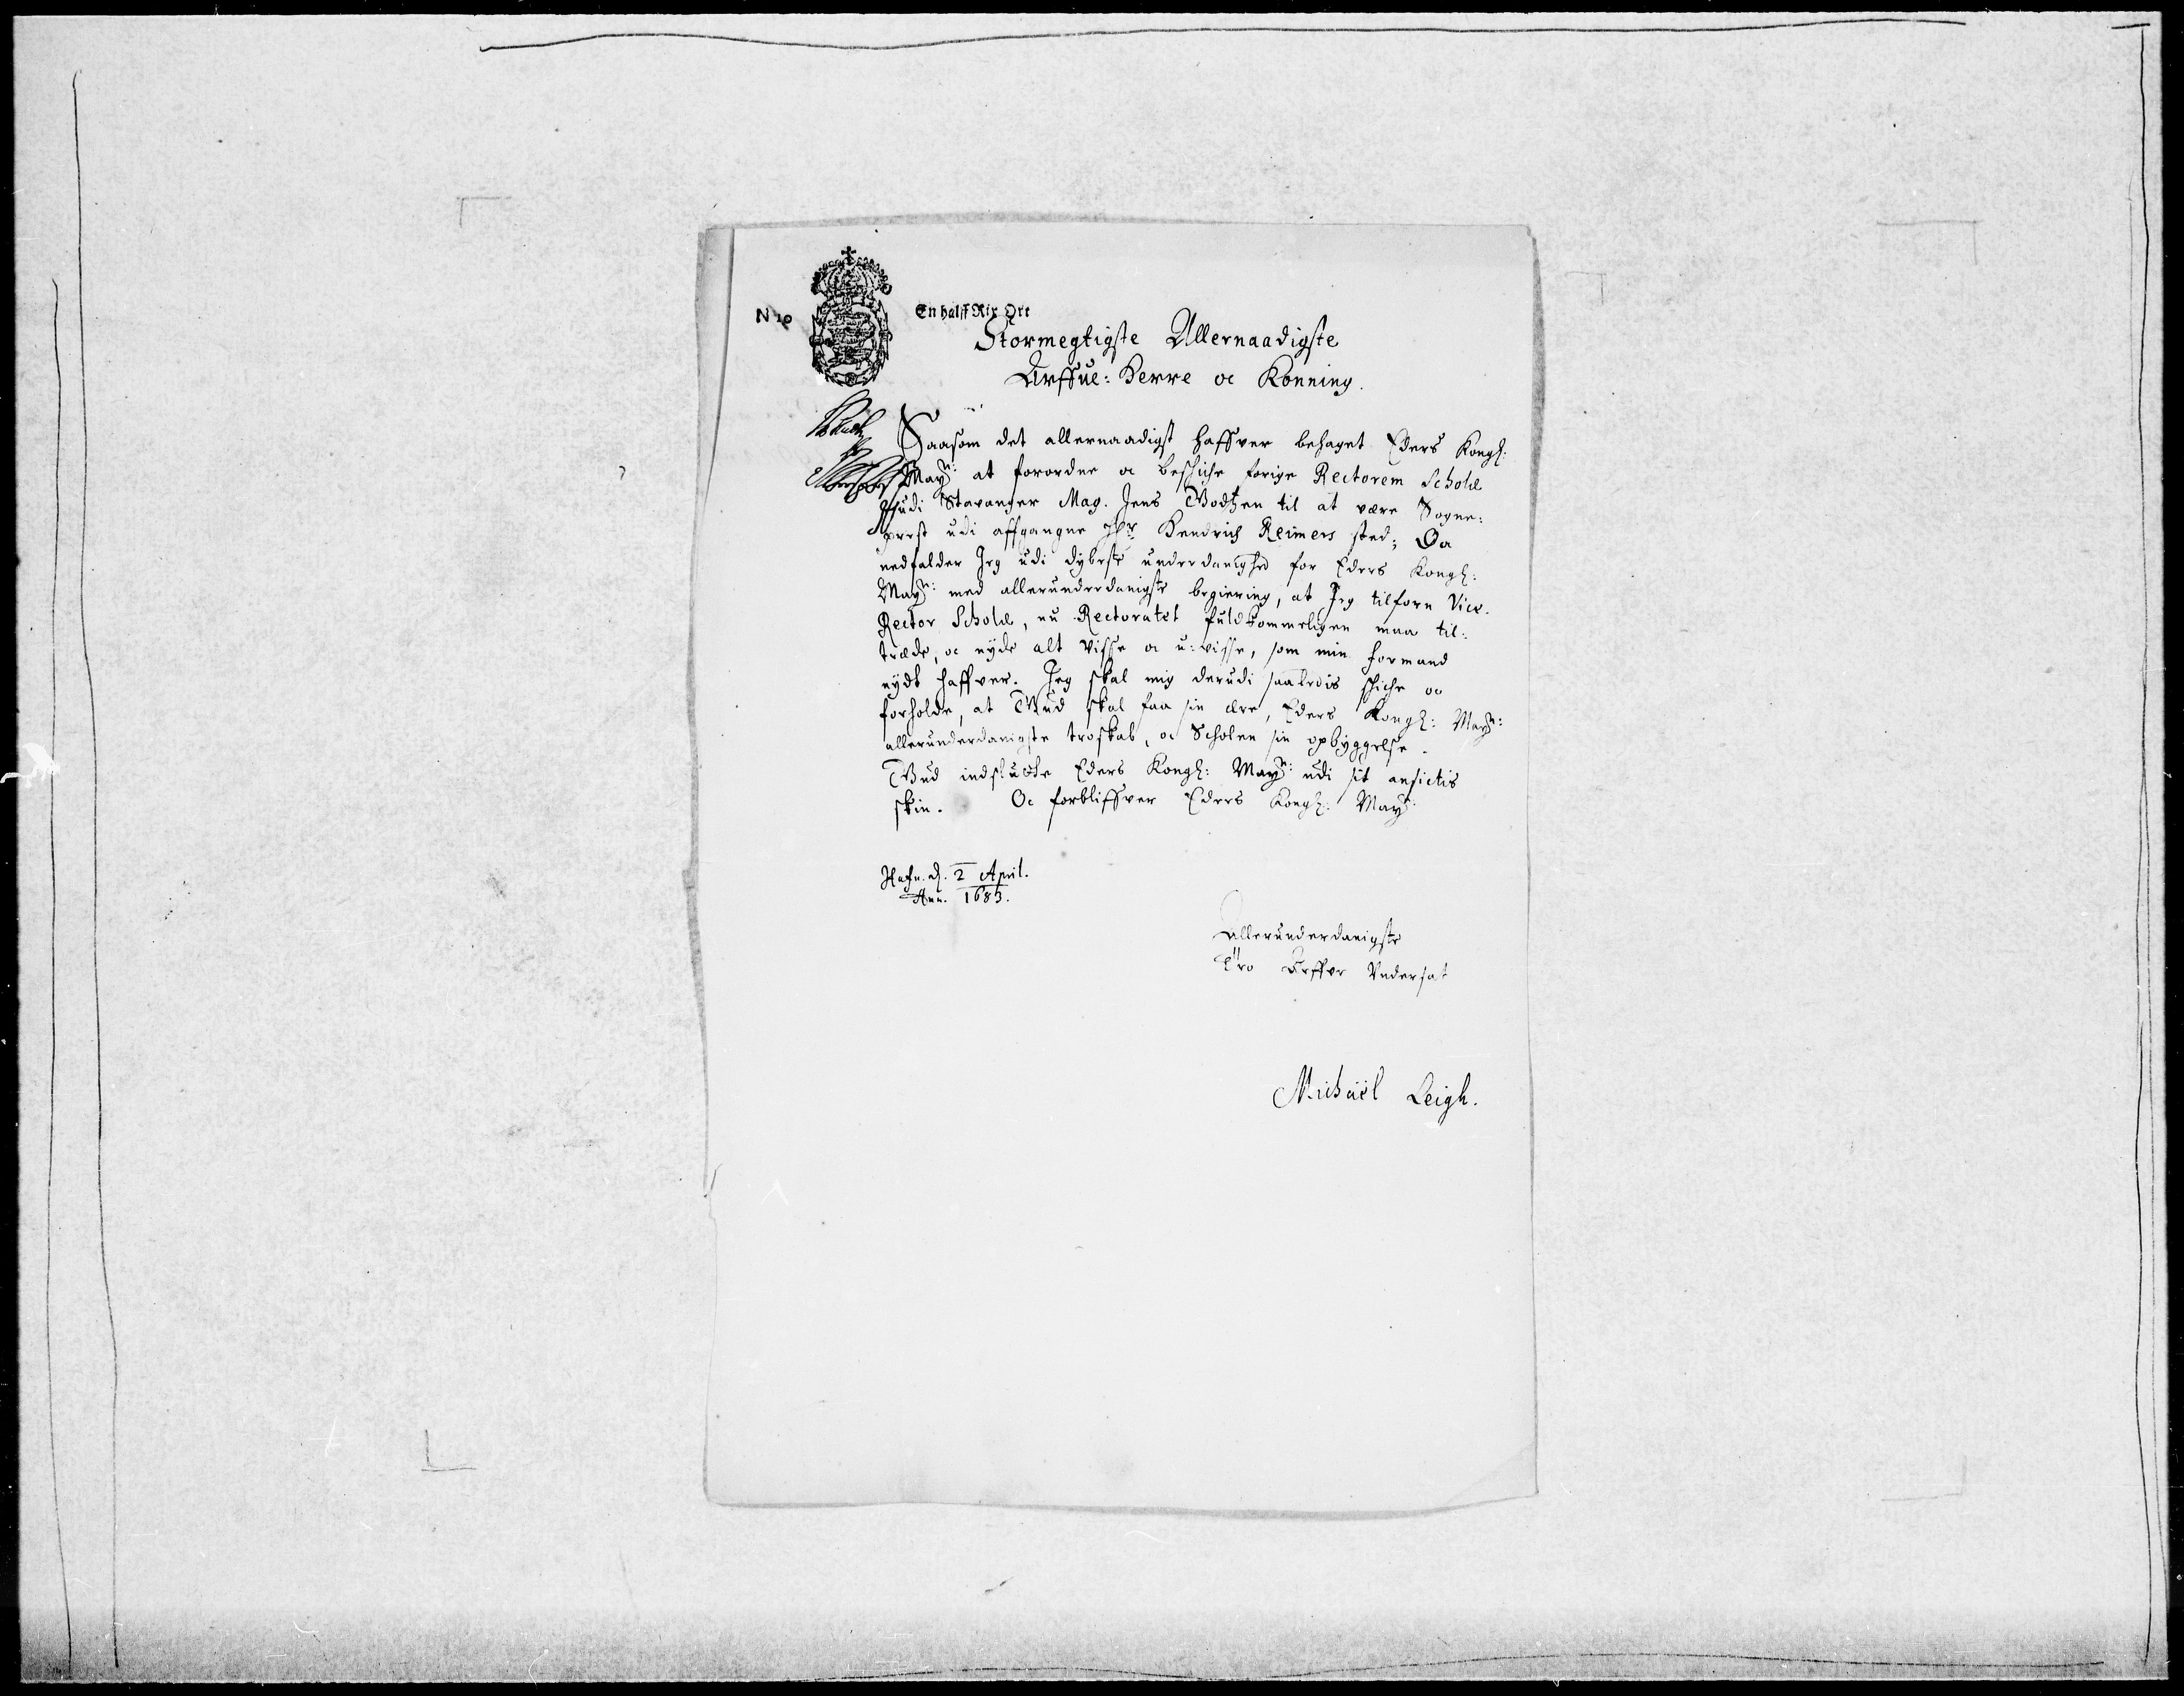 N 10
En halff Rix Ort
Stormegtigste Allernaadigste
Arffue: Herre oc Konning.
Saasom det allernaadigst haffver behaget Eders Kongl:
May: at forordne oc beschiche forige Rectorem Scholæ
udi Stavanger Mag. Jens Godtzen til at være Sogne:
prest udi affgangne Hr Hendrich Reimers sted; Da
nedfalder Jeg udi dybeste underdanighed for Eders Kongl:
May: med allerunderdanigste begiering, at Jeg tilforn Vice-
Rector Scholæ, nu Rectoratet fuldkommeligen maa til:
træde, oc nyde alt visse oc u:visse, som min formand
nydt haffver. Jeg skal mig derudi saaledis schiche oc
forholde, at Gud skal faa sin ære, Eders Kongl: May:
allerunderdanigste troskab, oc Scholen sin opbyggelse.
Gud indslutte Eders Kongl: May: udi sit ansictis
skin. Oc forbliffver Eders Kongl: May:
Hafn. d. 2 April.
Ann. 1683.
Allerunderdanigste
Tro Arffve Undersat
Michaël Leigh.